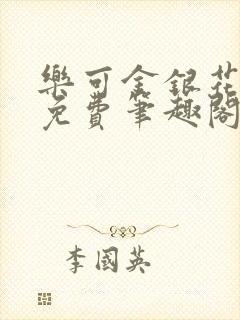 樂可金銀花
免費筆趣閣
李國英